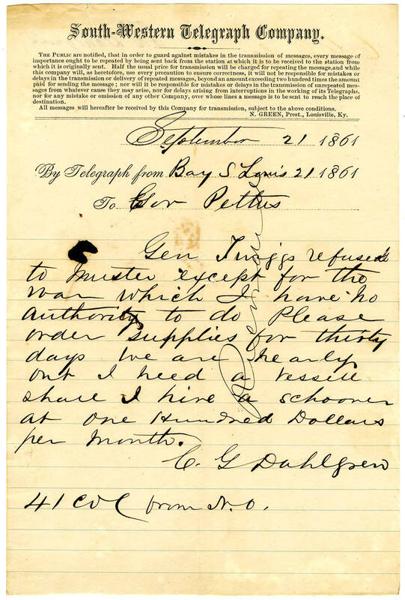 South-Western Telegraph Company.
The Public are notified, that in order to guard against mistakes in the transmission of messages, every message of
importance ought to be repeated by being sent back from the station at which it is to be received to the station from
which it is originally sent. Half the usual price for transmission will be charged for repeating the message, and while
this company will, as heretofore, use every precaution to ensure correctness, it will not be responsible for mistakes or
delays in the transmission or delivery of repeated messages, beyond an amount exceeding two hundred times the amount
paid for sending the message; nor will it be responsible for mistakes or delays in the transmission of unrepeated messa-
ges from whatever cause they may arise, nor for delays arising from interruptions in the working of its Telegraphs,
nor for any mistake or omission of any other Company, over whose lines a message is to be sent to reach the place of
destination.
All messages will hereafter be received by this Company for transmission, subject to the above conditions.
N. GREEN, Prest., Louisville, Ky.
September 21 1861
By Telegraph from Bay S Louis 21 1861
To Gov Pettus
Gen Twiggs refuses
to muster except for the
war which I have no
authority to do Please
order supplies for thirty
days we are nearly
out I need a vessell
shall I hire a schooner
at one Hundred Dollars
per month.
C. G Dahlgren
41 col from N.O.